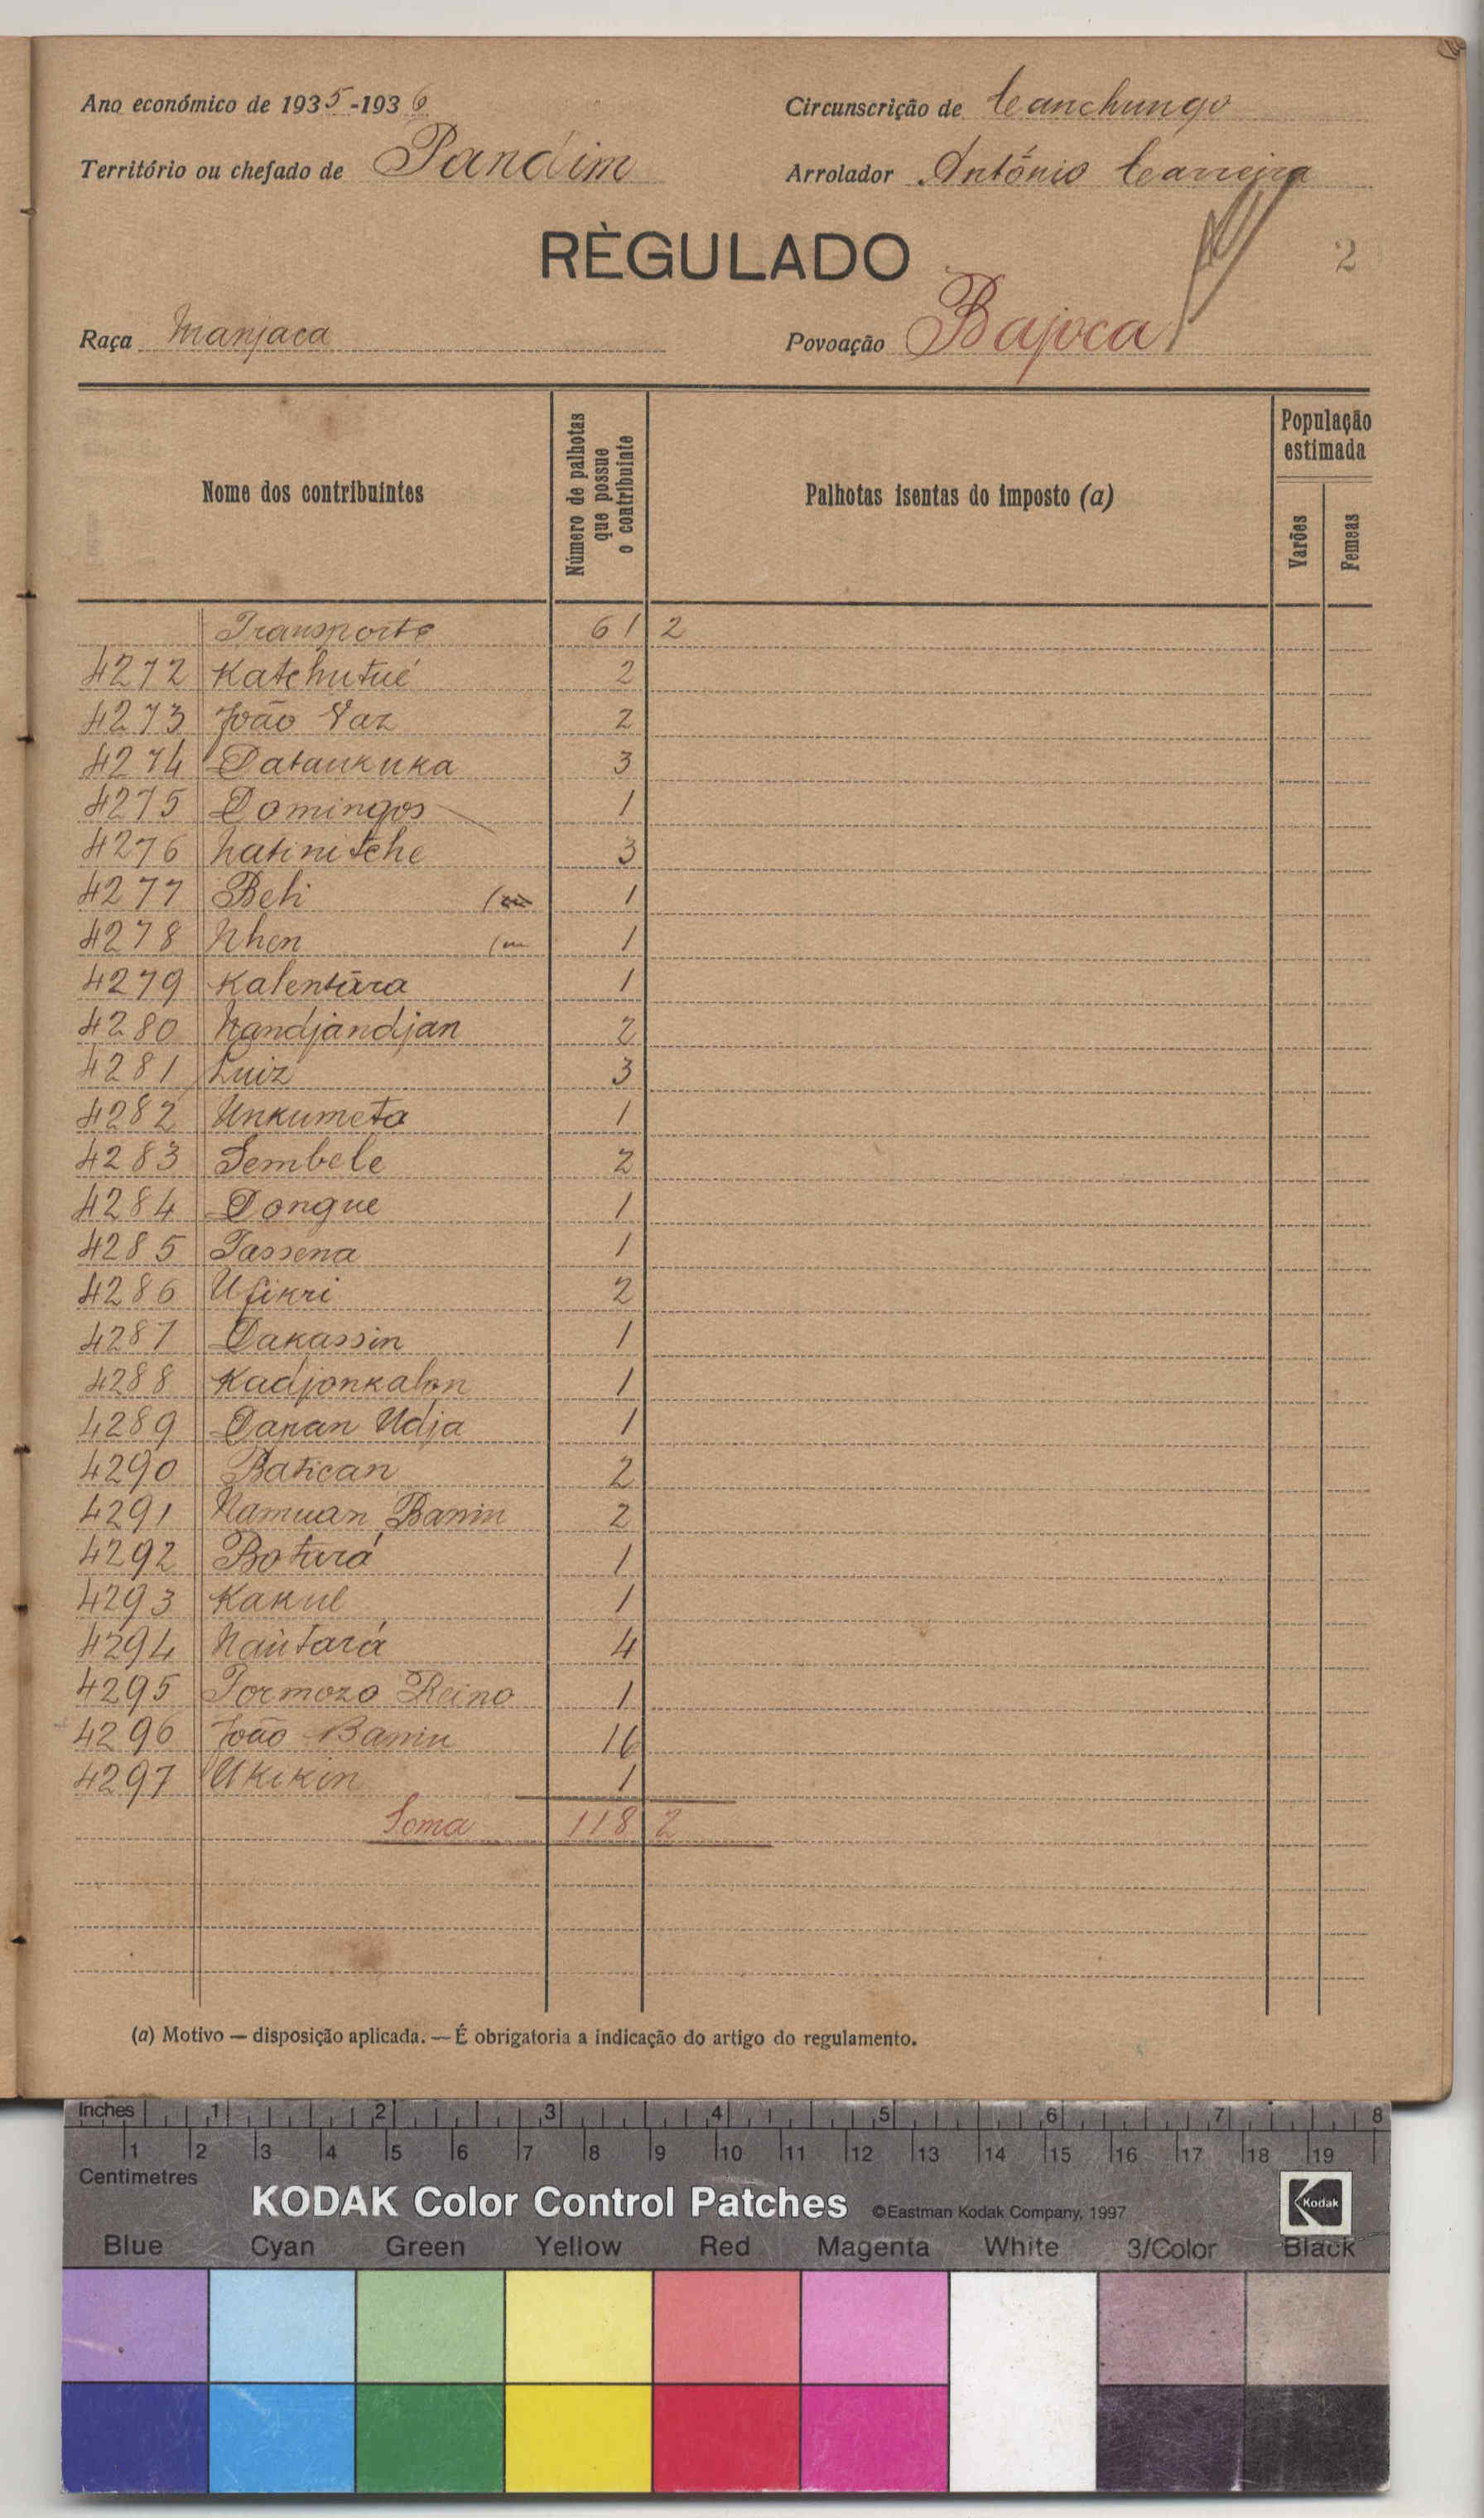 Ano económico de 1935-1936
Circunscrição de Canchungo
Território ou chefado de Pandim
Arrolador António Carreira
RÈGULADO
2
Raça Manjaca
Povoação Bajoca
Nome dos contribuintes
Número de palhotas que possue o contribuinte
Palhotas isentas do imposto (a)
População estimada
Varões
Femeas
Transporte 61 2
4272 Katchutué 2
4273 João Vaz 2
4274 Dataukuka 3
4275 Domingos 1
4276 Natinitche 3
4277 Beti 1
4278 Nhen 1
4279 Kalentára 1
4280 Nandjandjan 2
4281 Luiz 3
4282 Unkumeta 1
4283 Sembele 2
4284 Dongue 1
4285 Tassena 1
4286 Ufikri 2
4287 Dakassin 1
4288 Kadjonkalon 1
4289 Dapan Udja 1
4290 Batican 2
4291 Namuan Banin 2
4292 Botará 1
4293 Kakul 1
4294 Naùtará 4
4295 Formozo Reino 1
4296 João Banin 16
4297 Ukikin 1
Soma 118 2
(a) Motivo — disposição aplicada. — É obrigatoria a indicação do artigo do regulamento.
Inches 1 2 3 4 5 6 7 8
1 2 3 4 5 6 7 8 9 10 11 12 13 14 15 16 17 18 19
Centimetres
KODAK Color Control Patches ©Eastman Kodak Company, 1997
Kodak
Blue Cyan Green Yellow Red Magenta White 3/Color Black